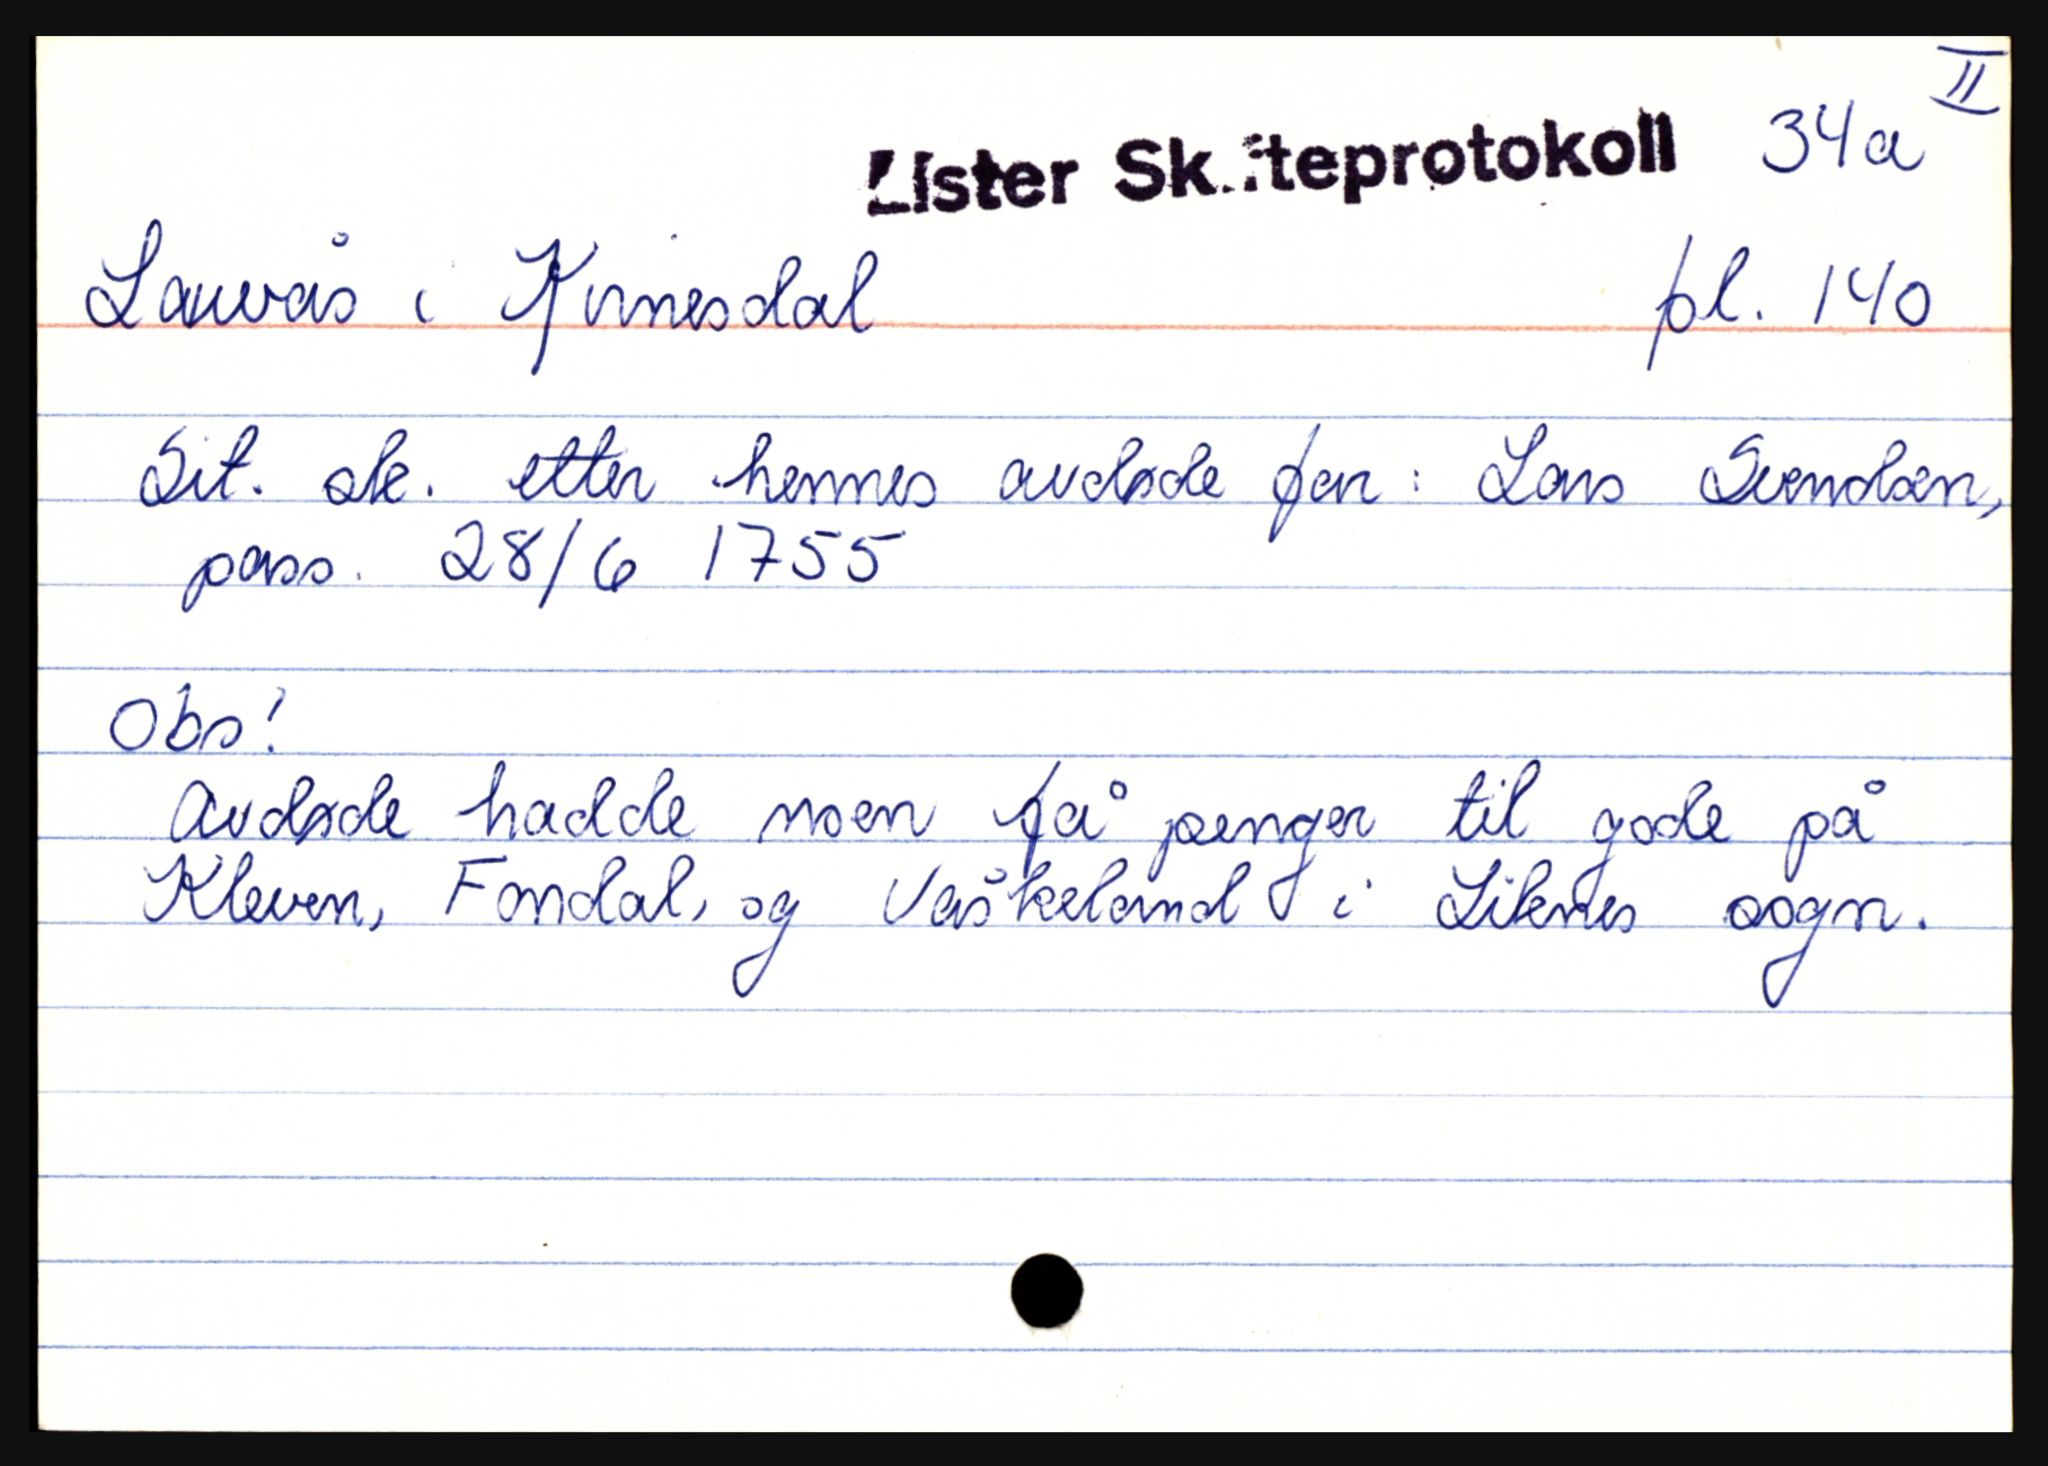 II
Lister Skifteprotokoll 34a
Lauvås i Kvinesdal pl. 140
Sit. sk. etter hennes avdøde far: Lars Svendsen,
pass. 28/6 1755
Obs!
Avdøde hadde noen få penger til gode på
Kleven, Fondal, og Våskeland i Liknes sogn.